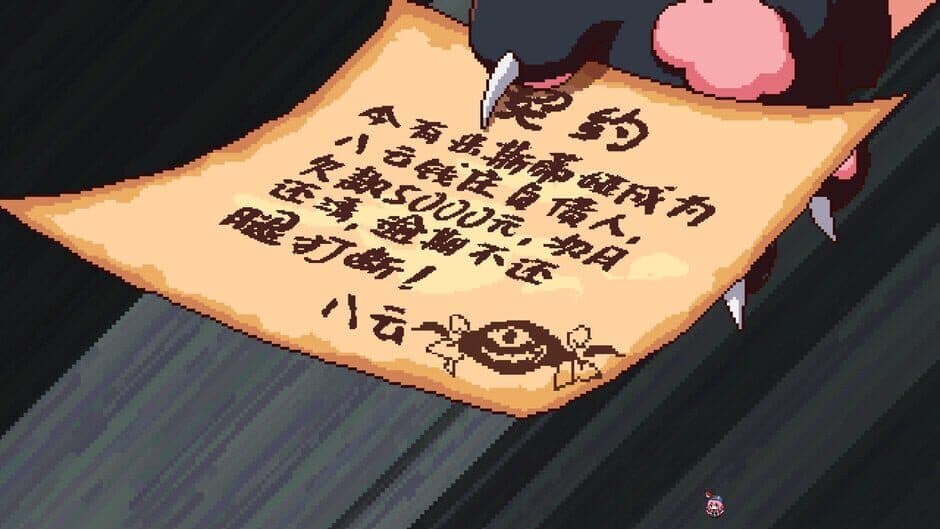 契约
今有达斯蒂妮成为
八云钱庄自债人,
欠款5000元, 如日
还清, 逾期不还
腿打断!
八云